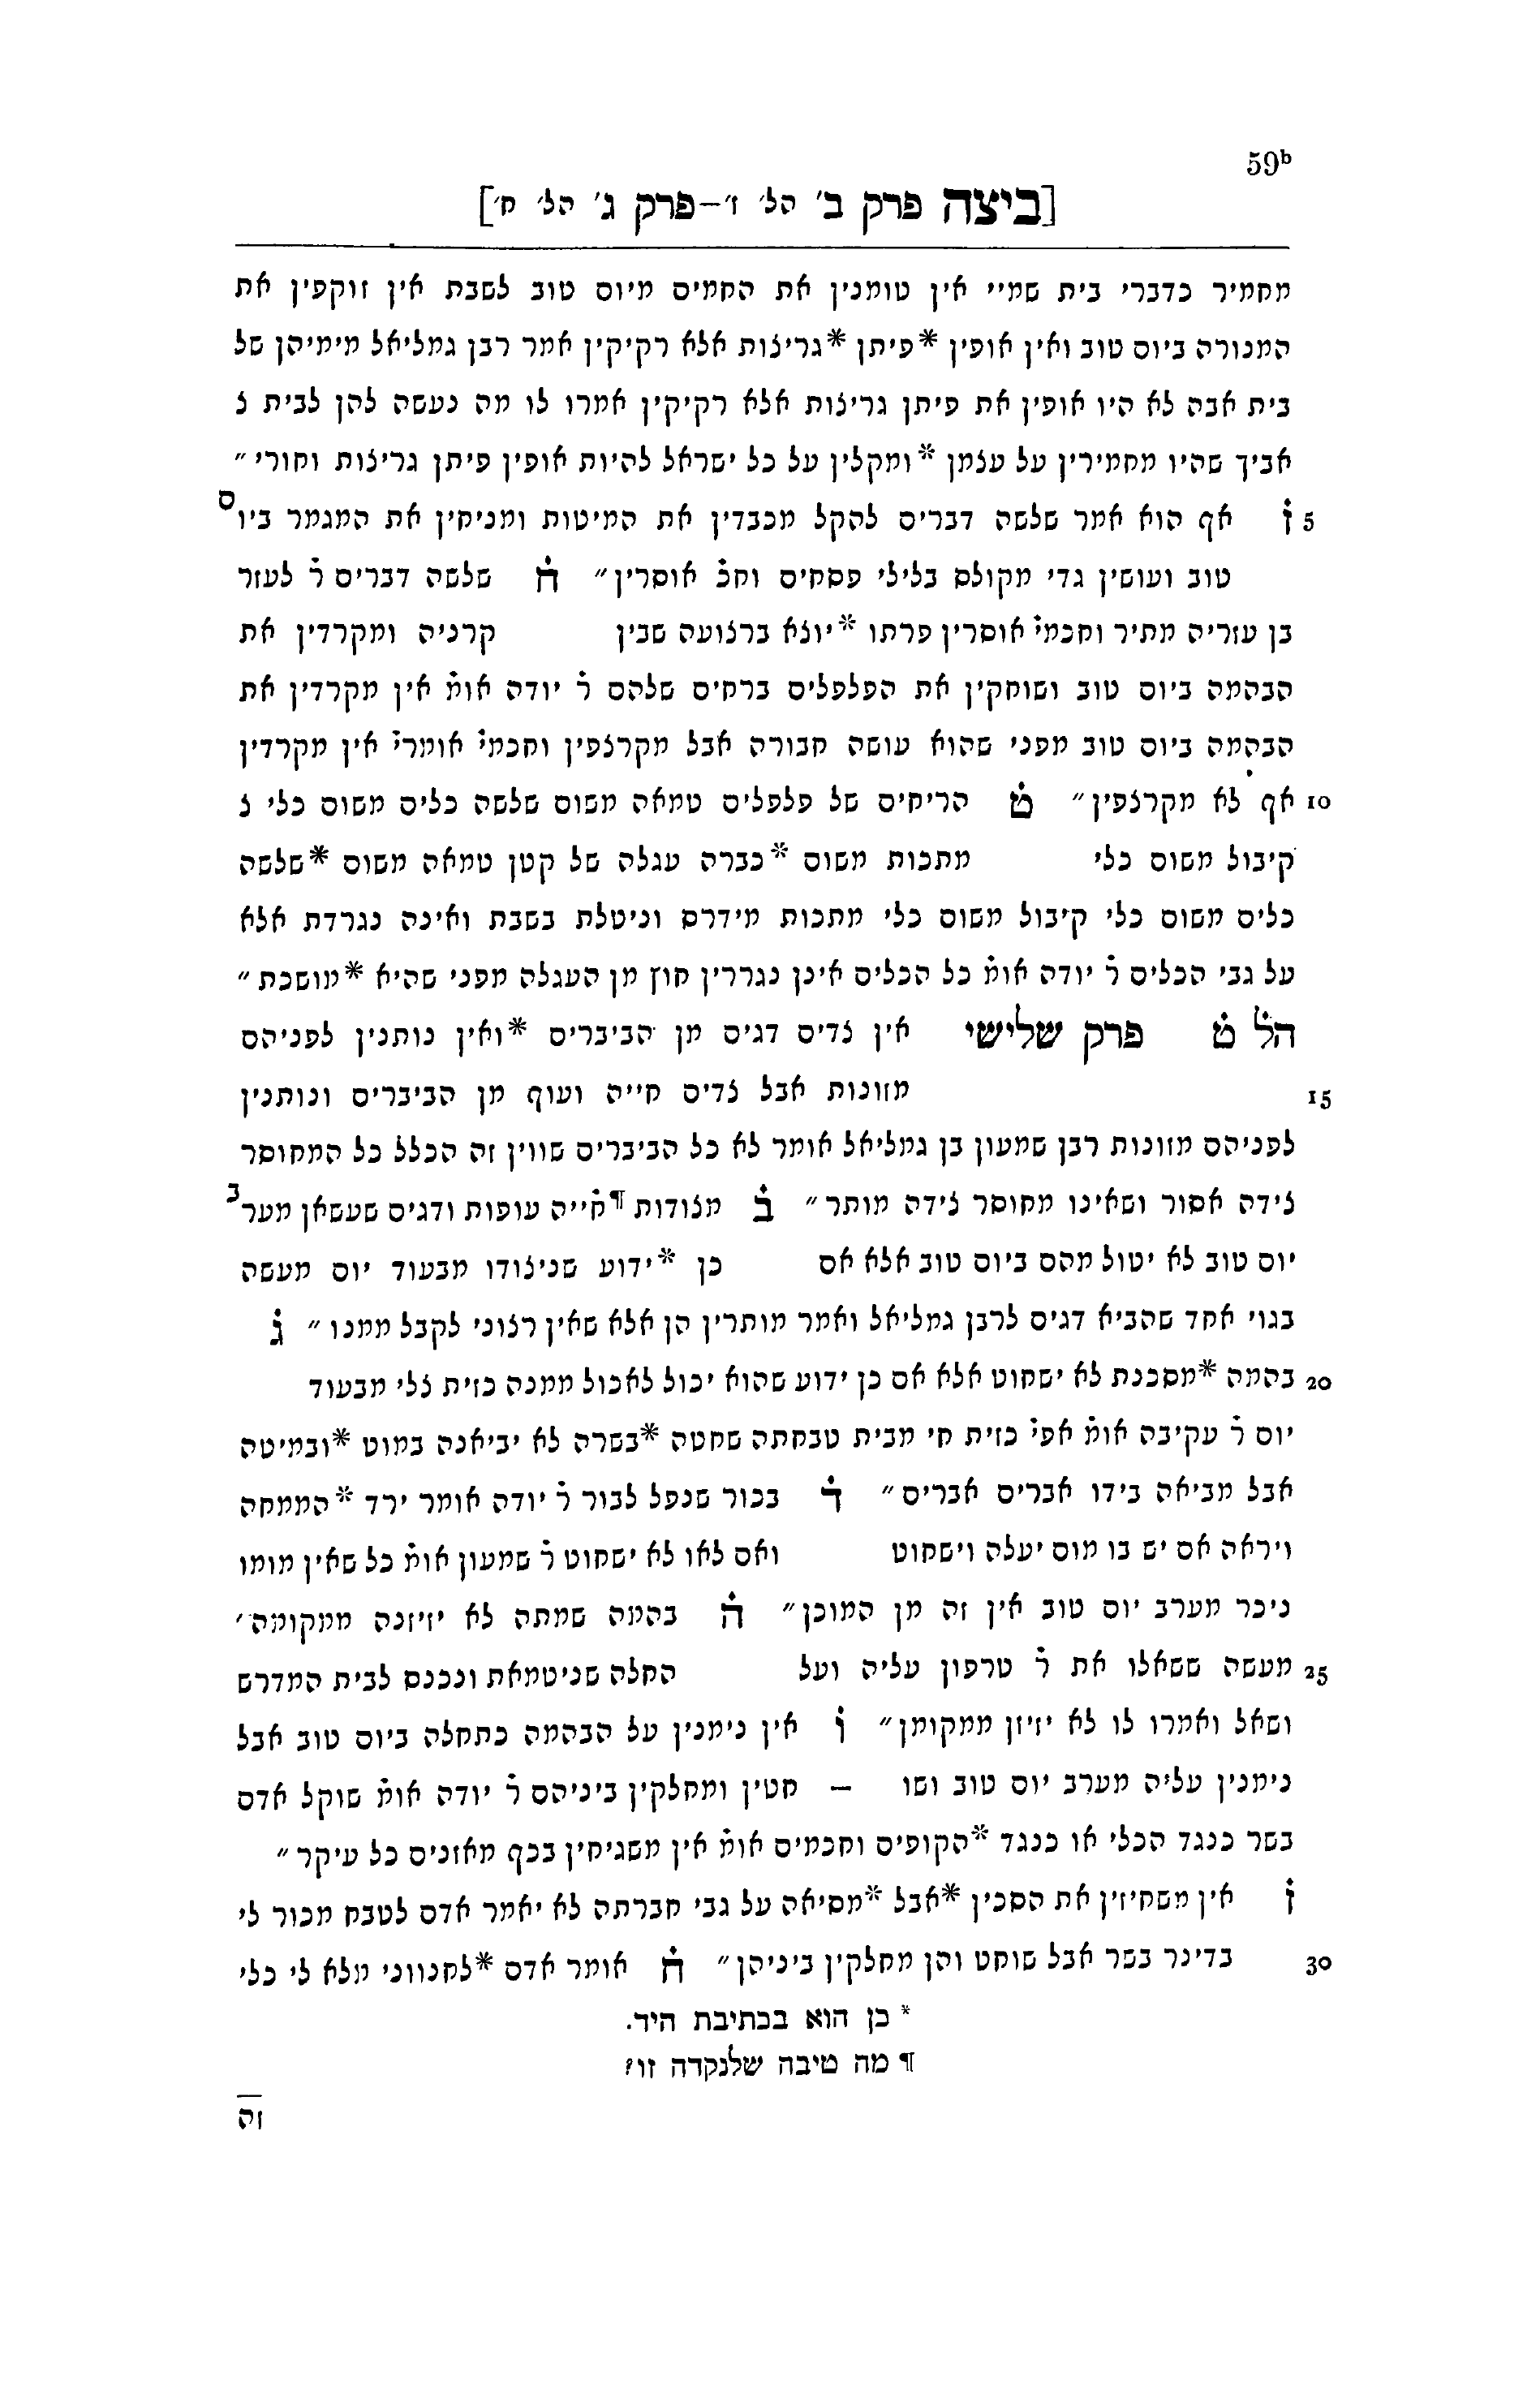 59ᵇ
[ביצה פרק ב׳ הל׳ ז׳–פרק ג׳ הל׳ ח׳]
מחמיר כדברי בית שמיי אין טומנין את החמים מיום טוב לשבת אין זוקפין את
המנורה ביום טוב ואין אופין *פיתן *גריצות אלא רקיקין אמר רבן גמליאל מימיהן של
בית אבה לא היו אופין את פיתן גריצות אלא רקיקין אמרו לו מה נעשה להן לבית צ
אביך שהיו מחמירין על עצמן *ומקלין על כל ישראל להיות אופין פיתן גריצות וחורי ״
5 ז̇ אף הוא אמר שלשה דברים להקל מכבדין את המיטות ומניחין את המגמר ביום
טוב ועושין גדי מקולס בלילי פסחים וחכ̇ אוסרין״ ח̇ שלשה דברים ר̇ לעזר
בן עזריה מתיר וחכמי̇ אוסרין פרתו *יוצא ברצועה שבין קרניה ומקרדין את
הבהמה ביום טוב ושוחקין את הפלפלים ברחים שלהם ר̇ יודה אומ̇ אין מקרדין את
הבהמה ביום טוב מפני שהוא עושה חבורה אבל מקרצפין וחכמי̇ אומרי̇ אין מקרדין
10 אף לא מקרצפין״ ט̇ הריחים של פלפלים טמאה משום שלשה כלים משום כלי צ
קיבול משום כלי מתכות משום *כברה עגלה של קטן טמאה משום *שלשה
כלים משום כלי קיבול משום כלי מתכות מידרס וניטלת בשבת ואינה נגרדת אלא
על גבי הכלים ר̇ יודה אומ̇ כל הכלים אינן נגררין חוץ מן העגלה מפני שהיא *מושכת ״
הל̇ ט̇ פרק שלישי אין צדים דגים מן הביברים *ואין נותנין לפניהם
15 מזונות אבל צדים חייה ועוף מן הביברים ונותנין
לפניהם מזונות רבן שמעון בן גמליאל אומר לא כל הביברים שווין זה הכלל כל המחוסר
צידה אסור ושאינו מחוסר צידה מותר ״ ב̇ מצודות ¶ח̇ייה עופות ודגים שעשאן מערב
יום טוב לא יטול מהם ביום טוב אלא אם כן *ידוע שניצודו מבעוד יום מעשה
בגוי אחד שהביא דגים לרבן גמליאל ואמר מותרין הן אלא שאין רצוני לקבל ממנו ״ ג̇
20 בהמה *מסכנת לא ישחוט אלא אם כן ידוע שהוא יכול לאכול ממנה כזית צלי מבעוד
יום ר̇ עקיבה אומ̇ אפי̇ כזית חי מבית טבחתה שחטה *בשרה לא יביאנה במוט *ובמיטה
אבל מביאה בידו אברים אברים״ ד̇ בכור שנפל לבור ר̇ יודה אומר ירד *הממחה
ויראה אם יש בו מום יעלה וישחוט ואם לאו לא ישחוט ר̇ שמעון אומ̇ כל שאין מומו
ניכר מערב יום טוב אין זה מן המוכן״ ה̇ בהמה שמתה לא יזיזנה ממקומה׳
25 מעשה ששאלו את ר̇ טרפון עליה ועל החלה שניטמאת ונכנס לבית המדרש
ושאל ואמרו לו לא יזיזן ממקומן״ ו̇ אין נימנין על הבהמה כתחלה ביום טוב אבל
נימנין עליה מערב יום טוב ושו — חטין ומחלקין ביניהם ר̇ יודה אומ̇ שוקל אדם
בשר כנגד הכלי או כנגד *הקופים וחכמים אומ̇ אין משגיחין בכף מאזנים כל עיקר ״
ז̇ אין משחיזין את הסכין *אבל *מסיאה על גבי חברתה לא יאמר אדם לטבח מכור לי
30 בדינר בשר אבל שוחט והן מחלקין ביניהן״ ח̇ אומר אדם *לחנווני מלא לי כלי
* כן הוא בכתיבת היד.
¶ מה טיבה שלנקדה זו?
זה